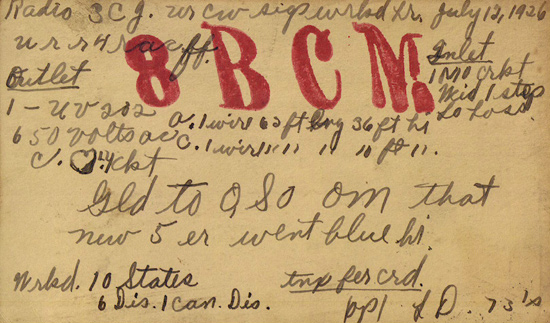 Radio 3CJ. ur cw sigs wrkd hr. July 12, 1926
u r r 4
8BCM
Outlet
Inlet
1 - UV 202
1 step
Lo Loss.
650 volts ac
A. 1 wire 62 ft lng 36 ft hi
C. 1 wire " " " 10 ft ".
ckt
Gld to QSO OM that
new 5 er went blue hi.
Wrkd. 10 States
6 Dis. 1 Can. Dis.
tnx fer crd.
73's